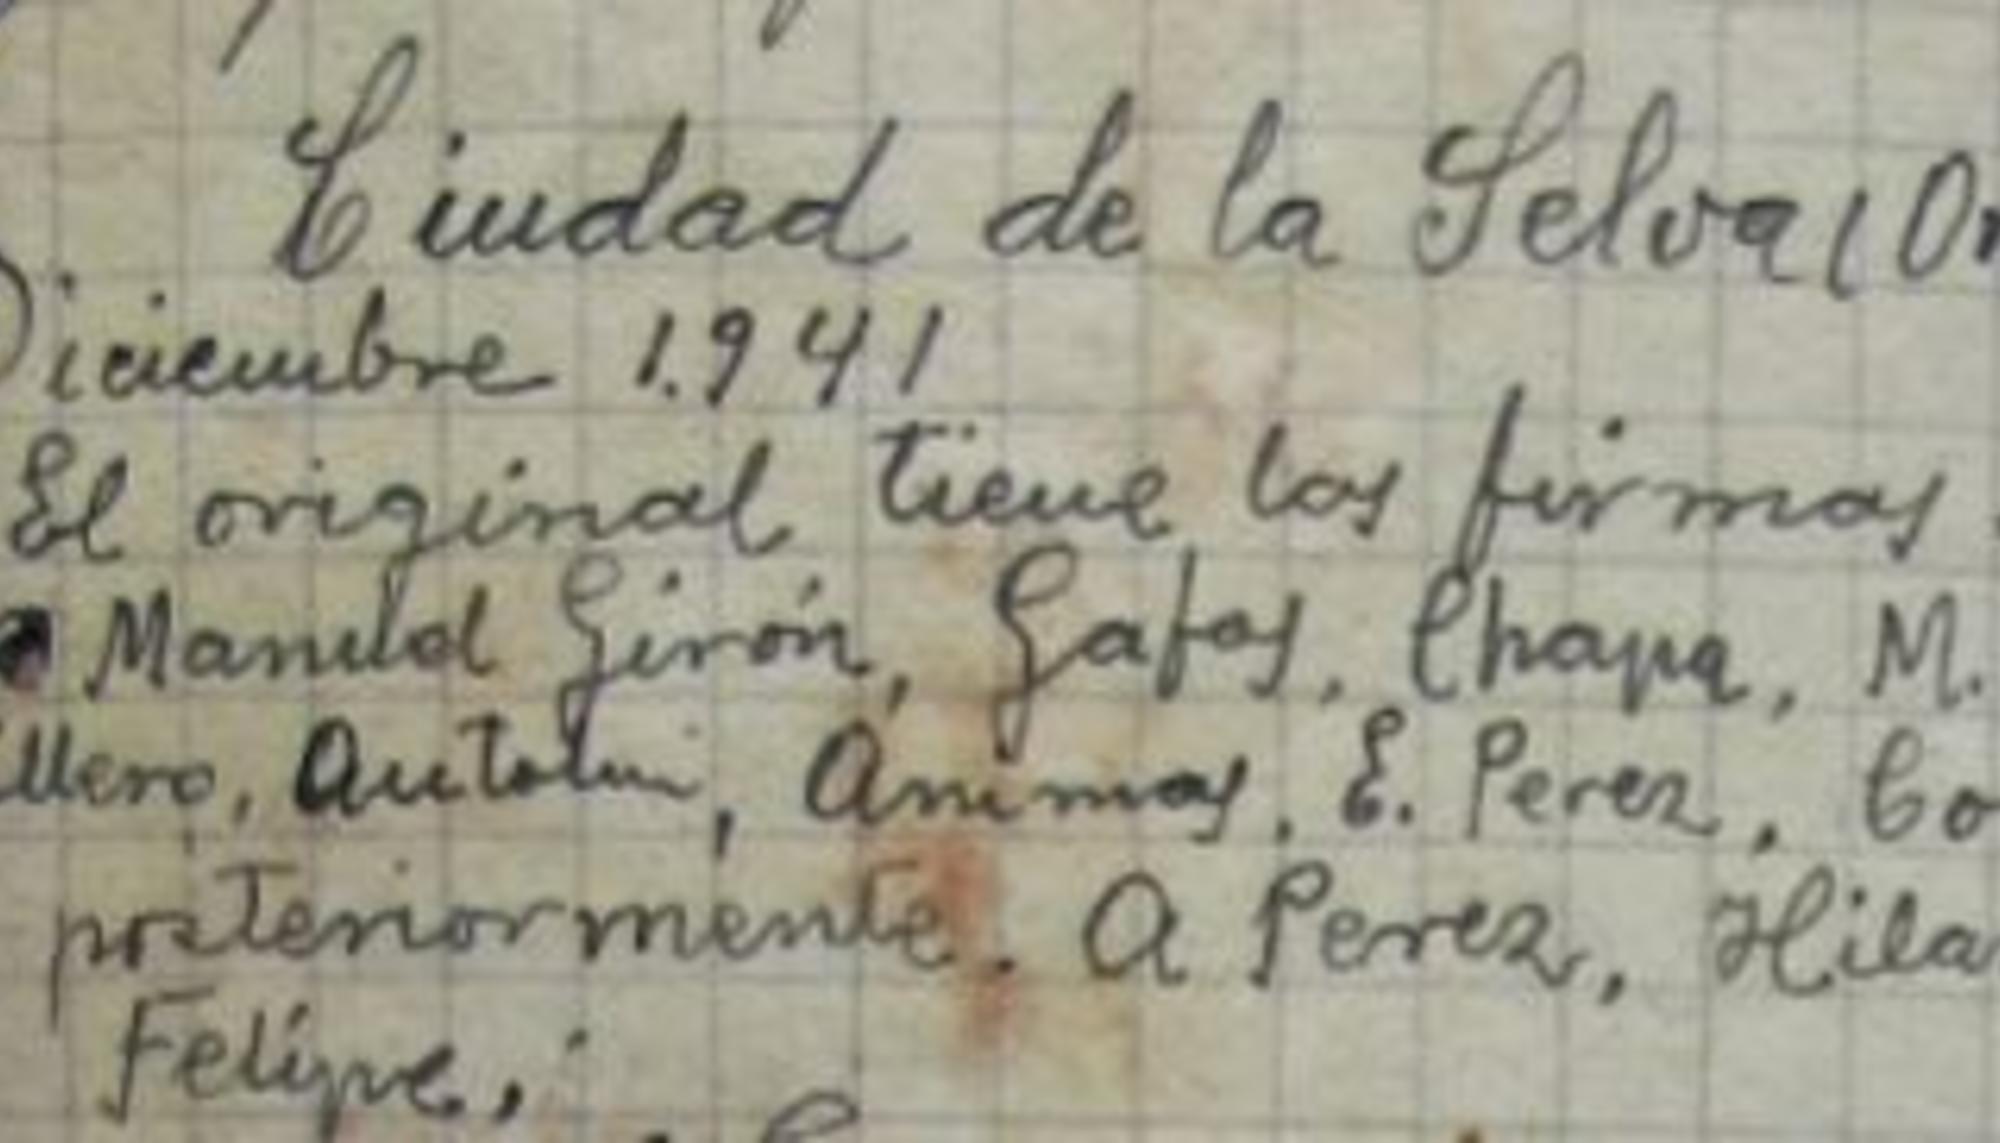 Ciudad de la Selva (Or
Diciembre 1.941
El original tiene las firmas
Manuel Girón, Gafas, Chapa, M.
illero, Antolin, Animas, E. Perez, Co
posteriormente. A Perez, Hila
Felipe,